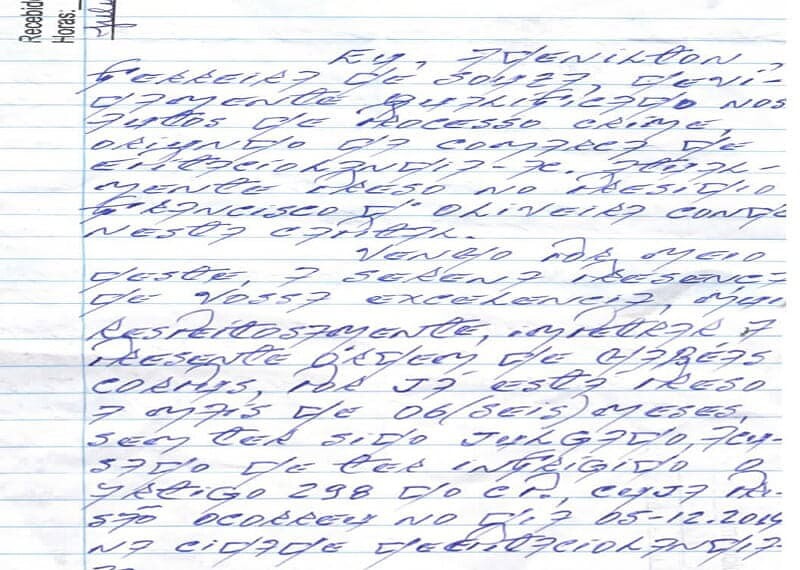 Recebido
Horas:
EU, ADENILTON
FERREIRA DE SOUZA, DEVI-
DAMENTE QUALIFICADO NOS
AUTOS DE PROCESSO CRIME,
ORIUNDO DA COMARCA DE
EPITACIOLÂNDIA-AC. ATUAL-
MENTE PRESO NO PRESIDIO
FRANCISCO D' OLIVEIRA CONDE
NESTA CAPITAL.
VENHO POR MEIO
DESTE, A SERENA PRESENÇA
DE VOSSA EXCELENCIA, MUI
RESPEITOSAMENTE, IMPETRAR A
PRESENTE ORDEM DE HABEAS
CORPUS, POR JÁ ESTÁ PRESO
A MAIS DE 06(SEIS) MESES,
SEM TER SIDO JULGADO, ACU-
SADO DE TER INFRIGIDO O
ARTIGO 298 DO CP., CUJA PRI-
SÃO OCORREU NO DIA 05-12.2014
NA CIDADE DE EPITACIOLANDIA-